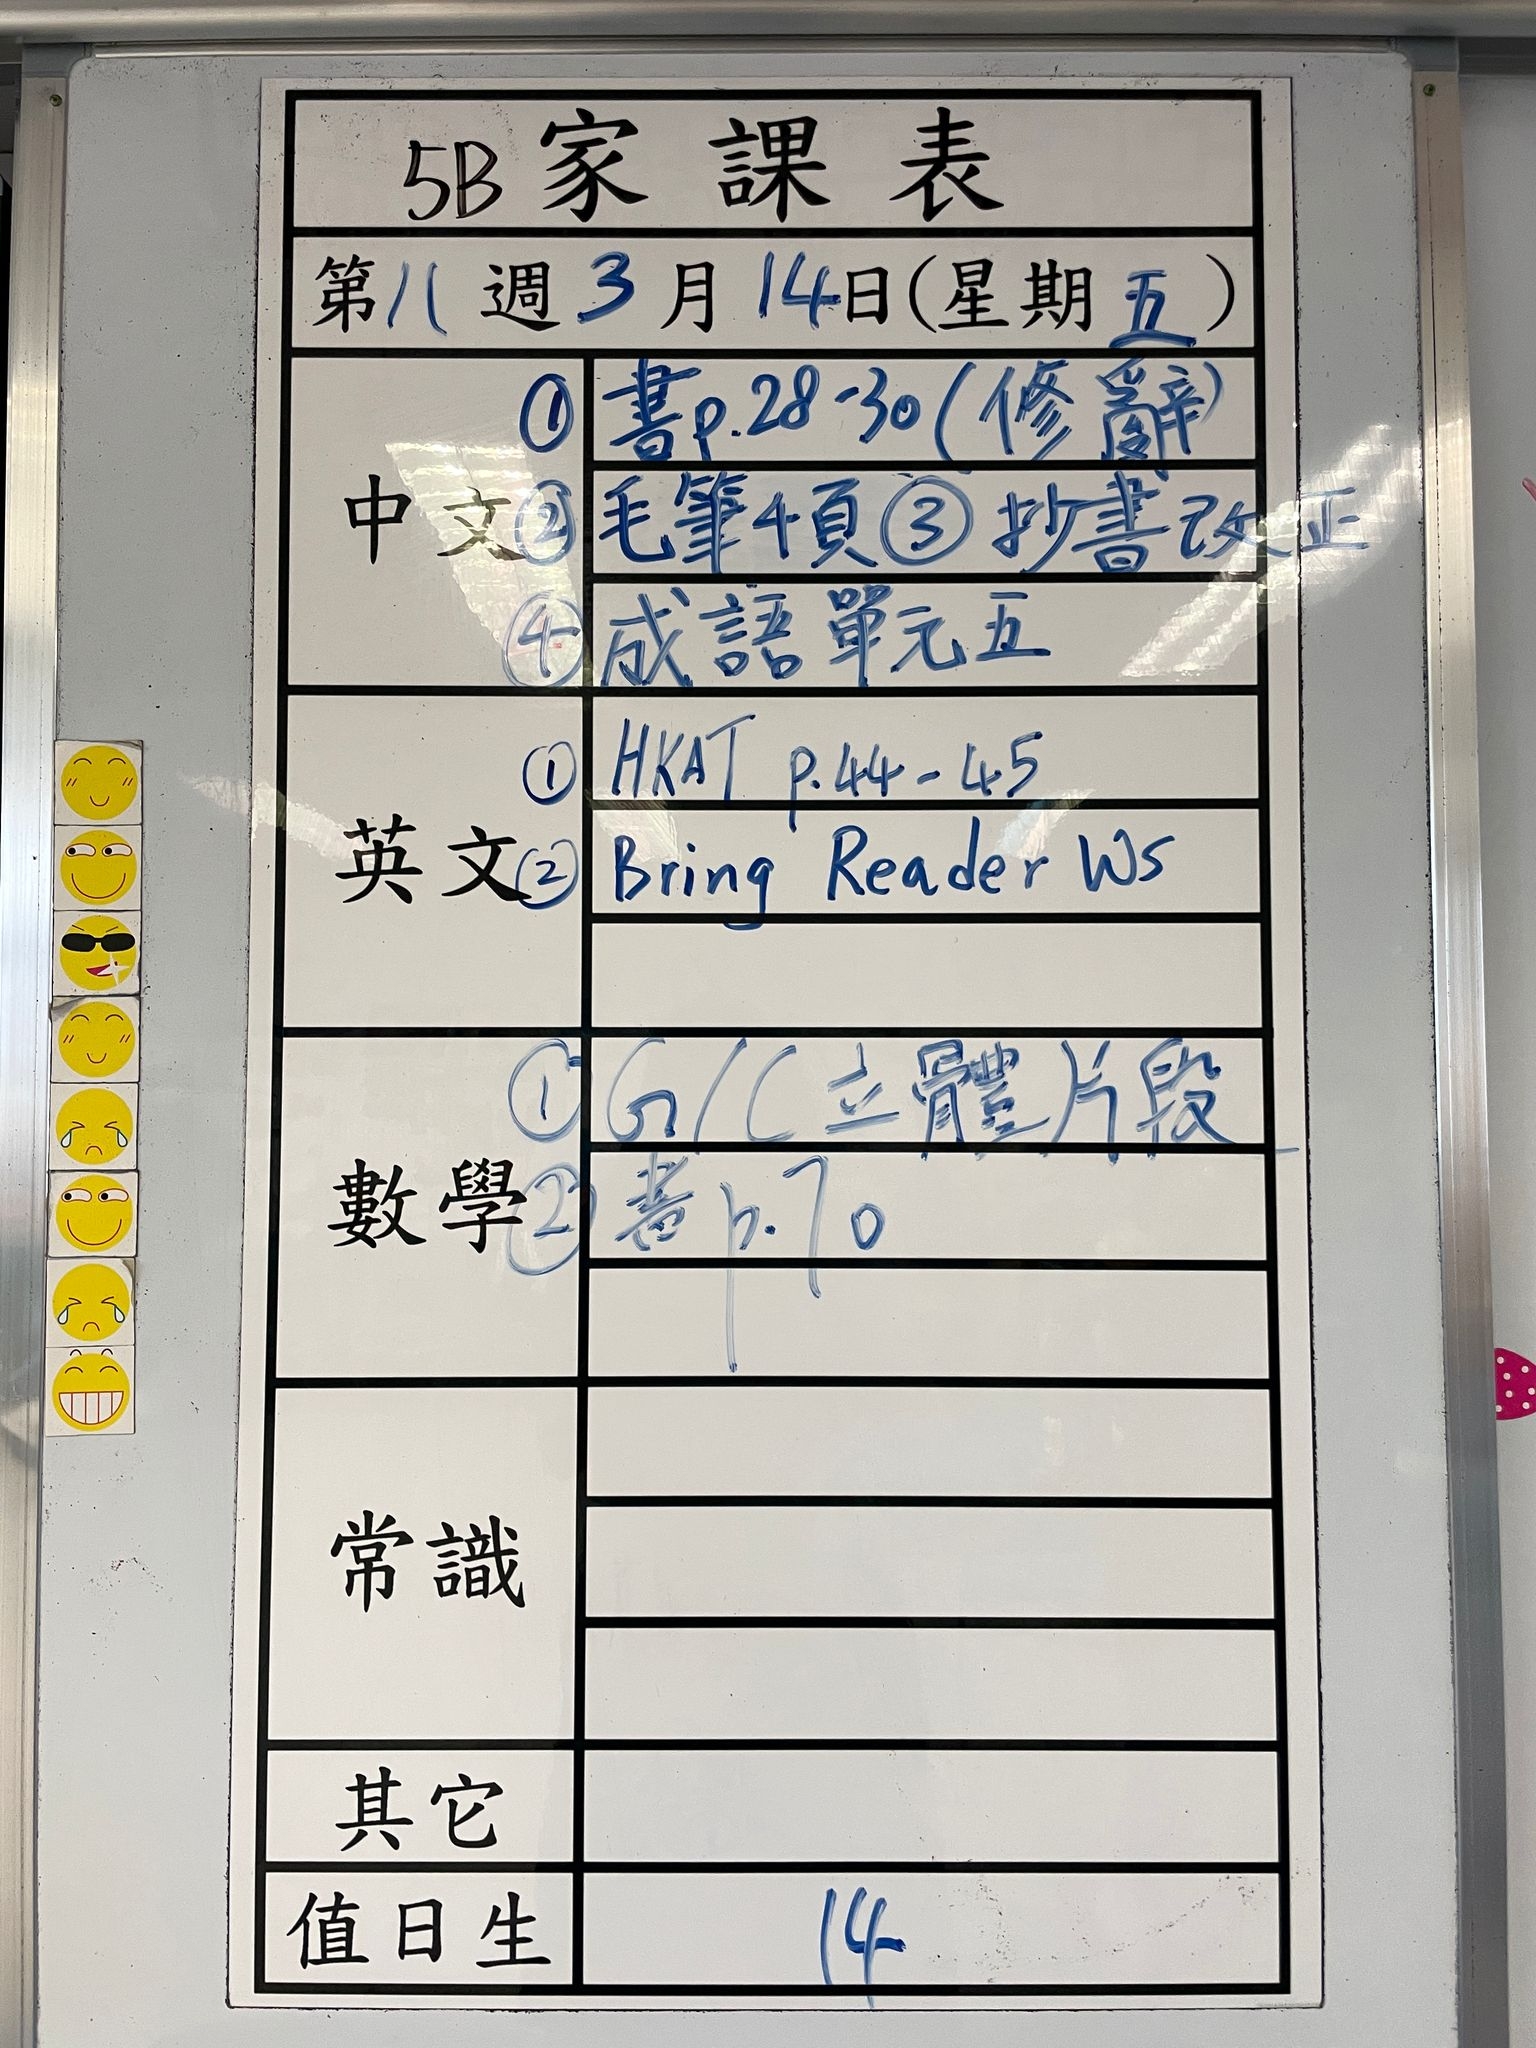 5B 家課表
第八週 3月14日(星期五)
中文
① 書p.28-30(修辭)
② 毛筆4頁 ③ 抄書改正
④ 成語單元五
英文
① HKAT p.44-45
② Bring Reader WS
數學
① G/C 立體片段
② 書p.70
常識
其它
值日生 14